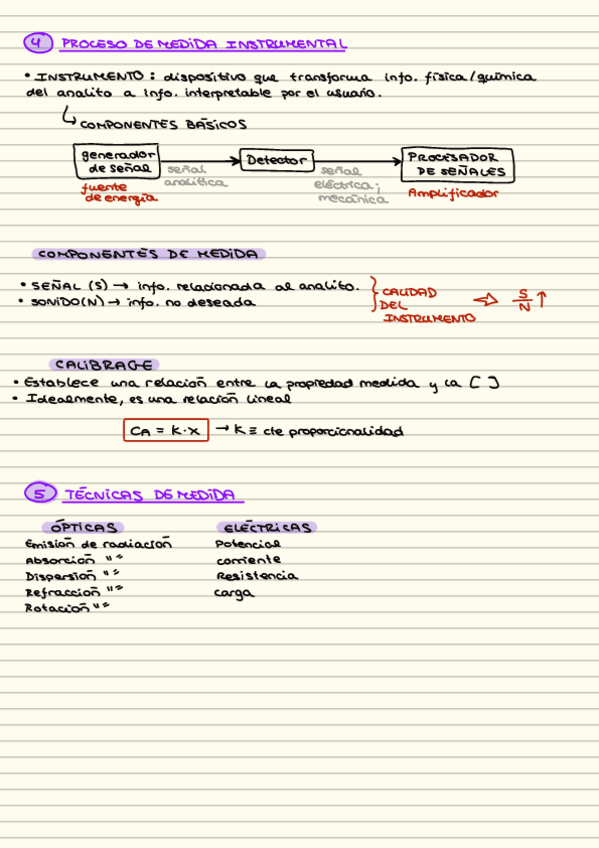 4 PROCESO DE MEDIDA INSTRUMENTAL
• INSTRUMENTO: dispositivo que transforma info. física/química
del analito a info. interpretable por el usuario.
↳ COMPONENTES BÁSICOS
generador de señal → Detector → PROCESADOR DE SEÑALES
señal analítica
señal eléctrica; mecánica
fuente de energía
Amplificador
COMPONENTES DE MEDIDA
• SEÑAL (S) → info. relacionada al analito.
• SONIDO(N) → info. no deseada
CALIDAD
DEL
INSTRUMENTO
⇒ S/N ↑
CALIBRAGE
• Establece una relación entre la propiedad medida y la [ ]
• Idealmente, es una relación lineal
CA = K·X → K ≡ cte proporcionalidad
5 TÉCNICAS DE MEDIDA
ÓPTICAS ELÉCTRICAS
Emisión de radiación Potencial
Absorción "" corriente
Dispersión "" Resistencia
Refracción "" carga
Rotación ""